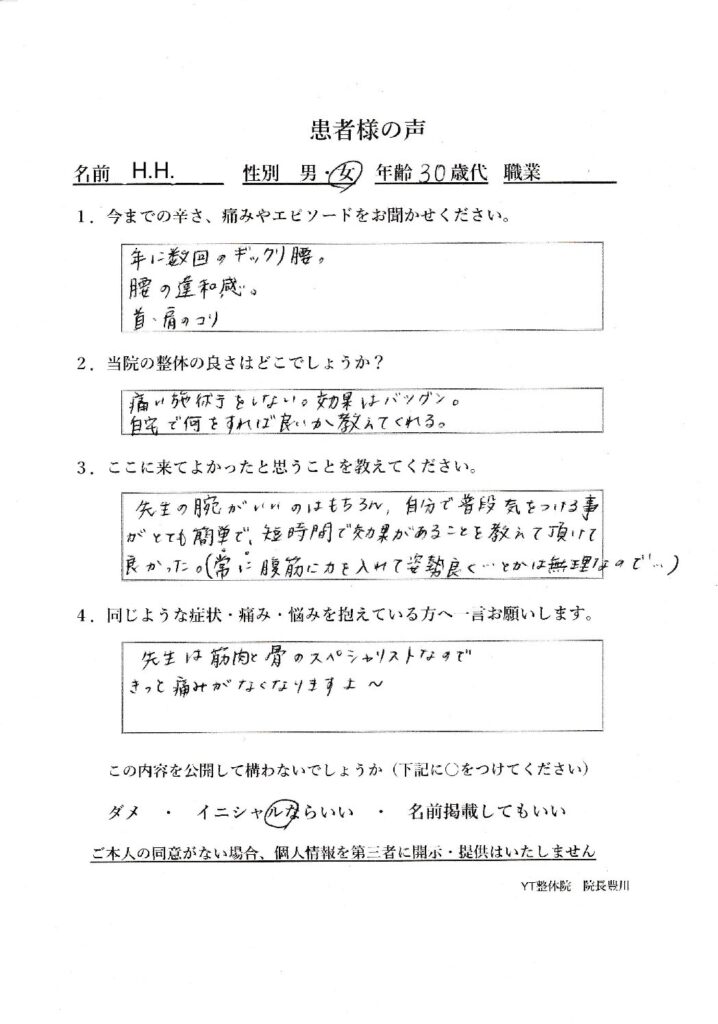 患者様の声
名前 H.H. 性別 男・女 年齢 30 歳代 職業
1．今までの辛さ、痛みやエピソードをお聞かせください。
年に数回のギックリ腰。
腰の違和感。
首・肩のコリ
2．当院の整体の良さはどこでしょうか？
痛い施術をしない。効果はバツグン。
自宅で何をすれば良いか教えてくれる。
3．ここに来てよかったと思うことを教えてください。
先生の腕がいいのはもちろん、自分で普段気をつける事
がとても簡単で、短時間で効果があることを教えて頂けて
良かった。(常に腹筋に力を入れて姿勢良く…とかは無理なので…)
4．同じような症状・痛み・悩みを抱えている方へ一言お願いします。
先生は筋肉と骨のスペシャリストなので
きっと痛みがなくなりますよ～
この内容を公開して構わないでしょうか（下記に〇をつけてください）
ダメ ・ イニシャルならいい ・ 名前掲載してもいい
ご本人の同意がない場合、個人情報を第三者に開示・提供はいたしません
YT整体院 院長豊川